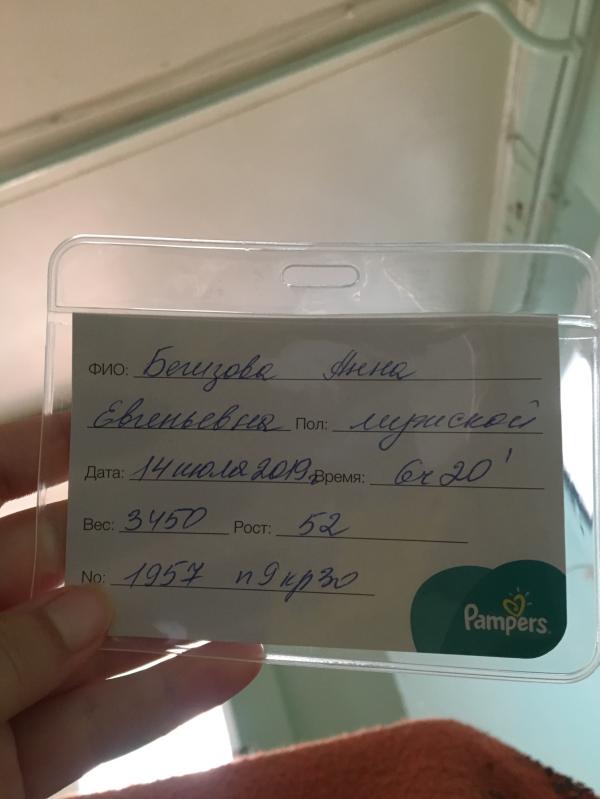 ФИО: Бегизова Анна
Евгеньевна Пол: мужской
Дата: 14 июля 2019г Время: 6ч 20'
Вес: 3450 Рост: 52
No: 1957 п9 кр30
Pampers